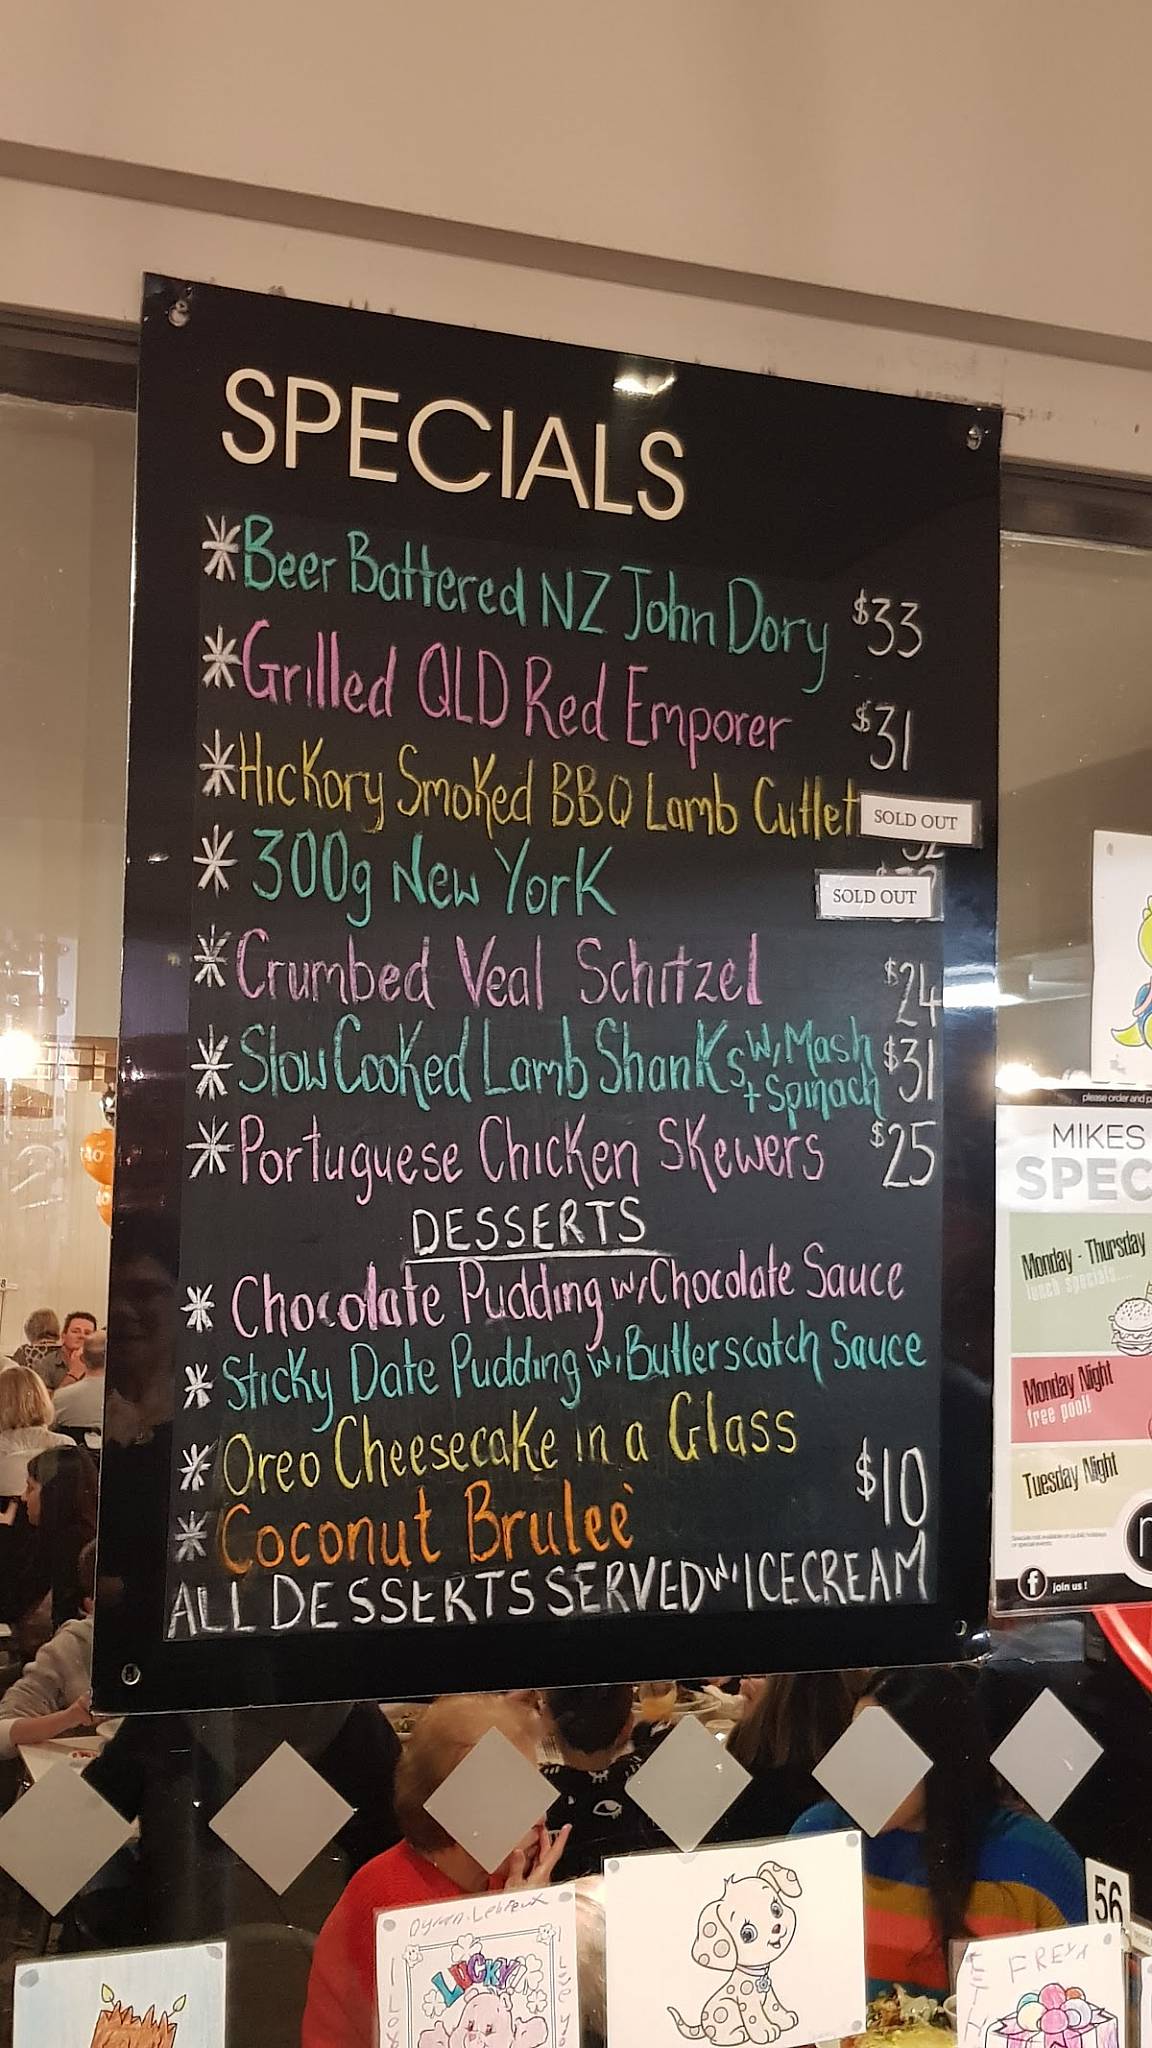 SPECIALS
* Beer Battered NZ John Dory $33
* Grilled QLD Red Emporer $31
* Hickory Smoked BBQ Lamb Cutlet SOLD OUT
* 300g New York SOLD OUT
* Crumbed Veal Schitzel $24
* Slow Cooked Lamb Shanks w, Mash + Spinach $31
* Portuguese Chicken Skewers $25
DESSERTS
* Chocolate Pudding w, Chocolate Sauce
* Sticky Date Pudding w, Butterscotch Sauce
* Oreo Cheesecake in a Glass
$10
* Coconut Bruleè
ALL DESSERTS SERVED w, ICECREAM
please order and
MIKES
SPEC
Monday - Thursday
lunch specials....
Monday Night
free pool!
Tuesday Night
f join us !
56
LUCKY
FREYA
40